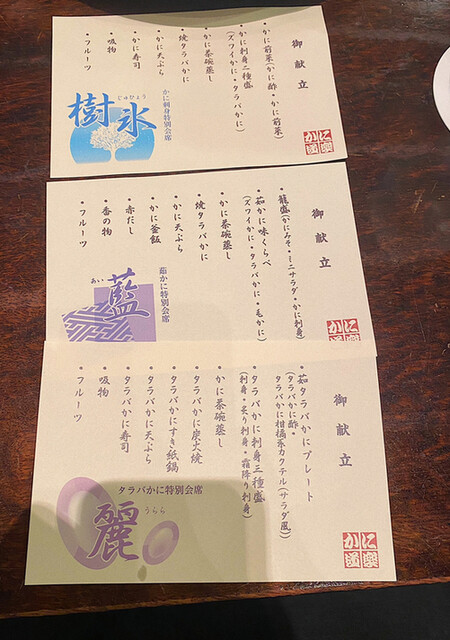 御献立
・かに前菜(かに酢・かに前菜)
・かに刺身二種盛
(ズワイかに・タラバかに)
・かに茶碗蒸し
・焼タラバかに
・かに天ぷら
・かに寿司
・吸物
・フルーツ
かに刺身特別会席
じゅひょう
樹氷
かに道楽
御献立
・籠盛(かにみそ・ミニサラダ・かに刺身)
・茹かに味くらべ
(ズワイかに・タラバかに・毛かに)
・かに茶碗蒸し
・焼タラバかに
・かに天ぷら
・かに釜飯
・赤だし
・香の物
・フルーツ
茹かに特別会席
あい
藍
かに道楽
御献立
・茹タラバかにプレート
(タラバかに酢
タラバかに柑橘系カクテル(サラダ風)
・タラバかに刺身三種盛
(刺身・炙り刺身・霜降り刺身)
・かに茶碗蒸し
・タラバかに炭火焼
・タラバかにすき紙鍋
・タラバかに天ぷら
・タラバかに寿司
・吸物
・フルーツ
タラバかに特別会席
うらら
麗
かに道楽